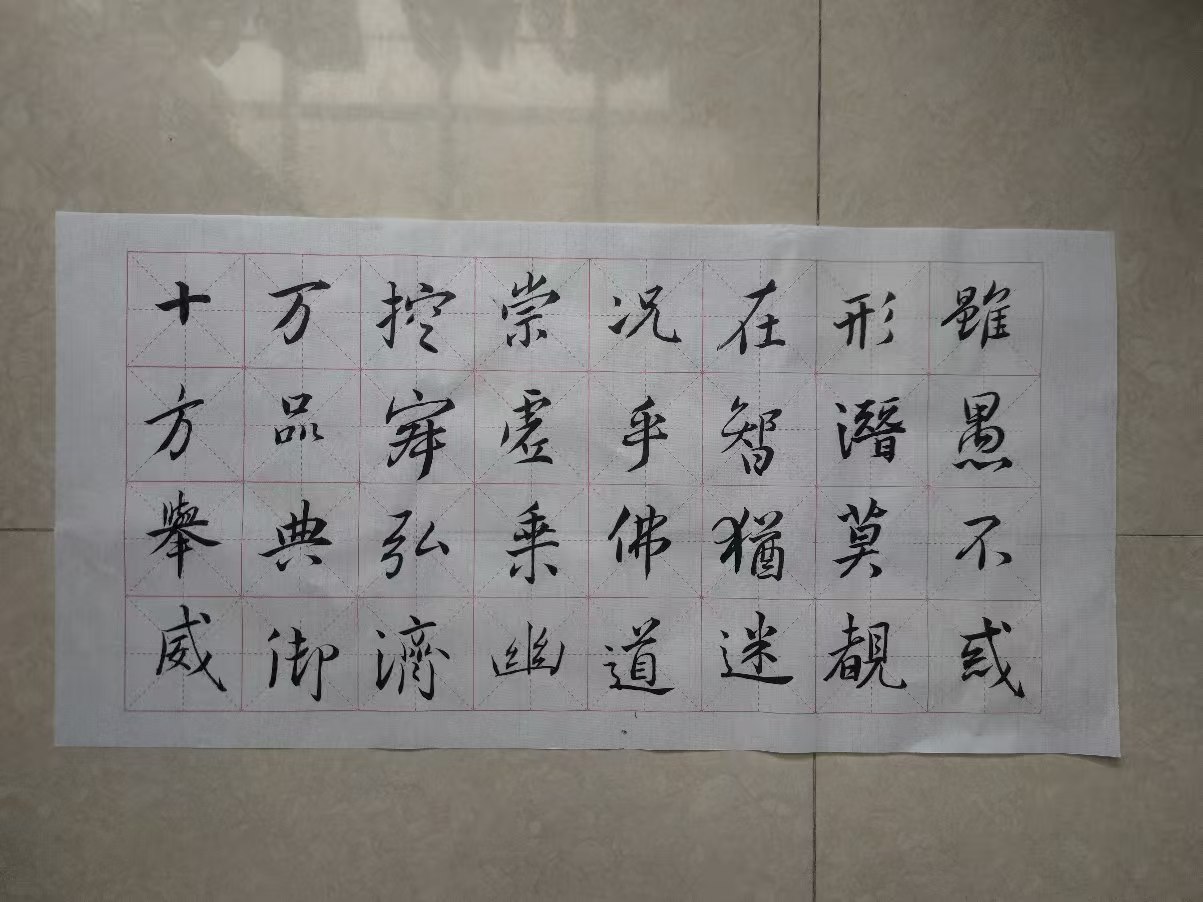 雖愚不惑
形潛莫覩
在智猶迷
况乎佛道
崇虛乘幽
控寂弘濟
万品典御
十方舉威